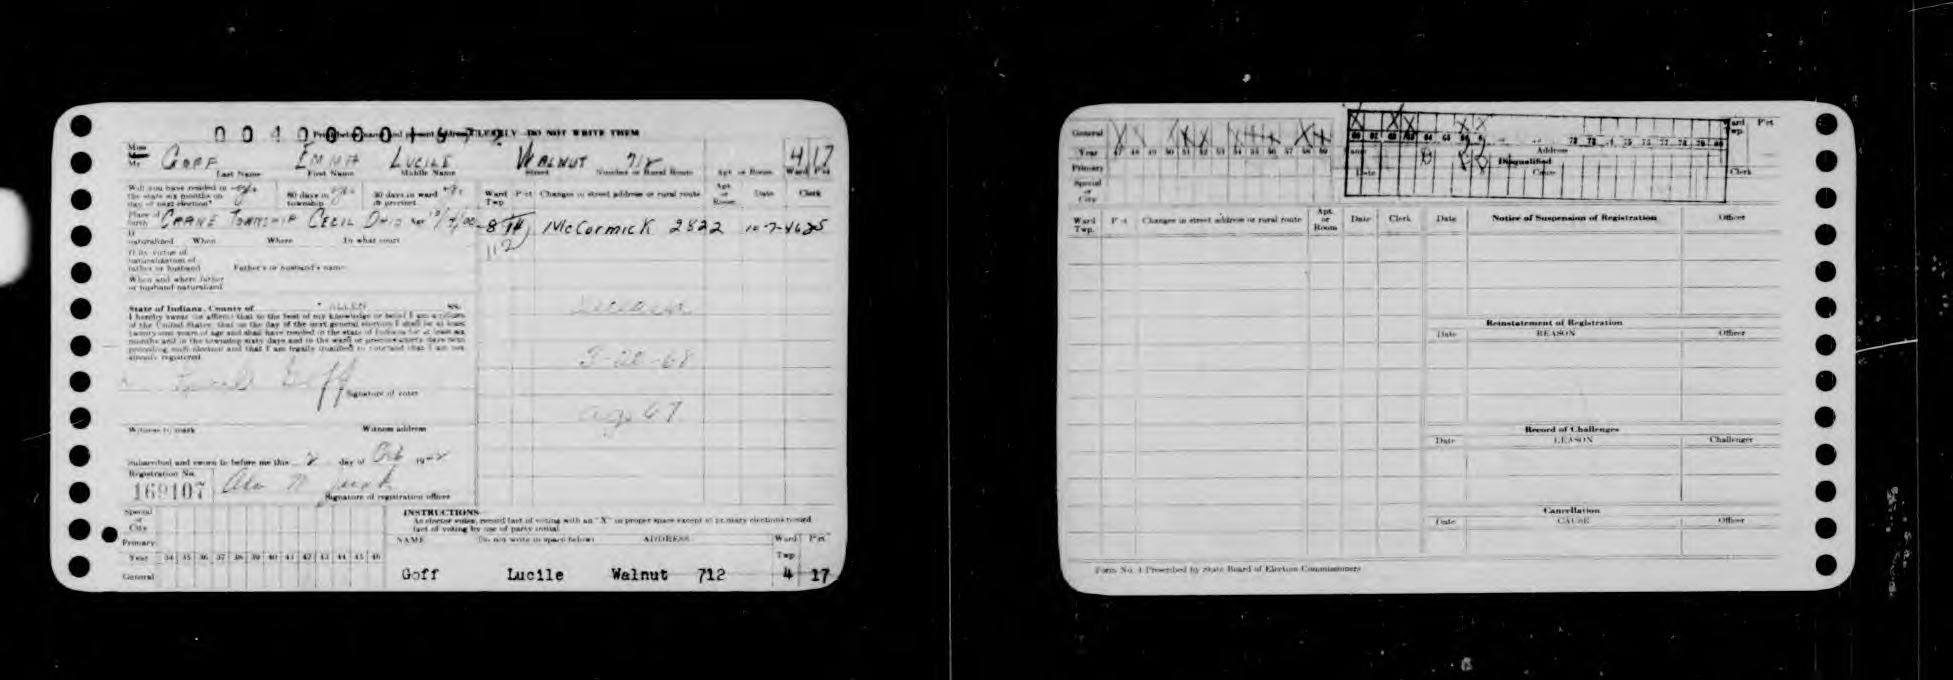 Print below name and present address CLEARLY DO NOT WRITE THEM
Miss
Mr.
GOFF EMMA LUCILE WALNUT 712 4 17
Last Name First Name Middle Name Street Number or Rural Route Apt. or Room Ward Pct
Will you have resided in the state six months on day of next election?
60 days in township
30 days in ward or precinct
Ward Twp. Pct Changes in street address or rural route Apt. or Room Date Clerk
Place of birth CRANE TOWNSHIP CECIL OHIO
8 McCormick 2822
If naturalized When Where In what court
If by virtue of naturalization of father or husband Father's or husband's name
When and where father or husband naturalized
State of Indiana, County of ALLEN SS:
I hereby swear (or affirm) that to the best of my knowledge or belief I am a citizen
of the United States; that on the day of the next general election I shall be at least
twenty-one years of age and shall have resided in the state of Indiana for at least six
months and in the township sixty days and in the ward or precinct thirty days next
preceding such election and that I am legally qualified to vote and that I am not
already registered.
Deceased
3-20-68
age 67
Lucile Goff
Signature of voter
Witness to mark Witness address
Subscribed and sworn to before me this 2 day of Oct 19
Registration No.
169107
Signature of registration officer
Special or City
Primary
Year 34 35 36 37 38 39 40 41 42 43 44 45 46
General
INSTRUCTIONS
As elector votes, record fact of voting with an "X" in proper space except at primary elections record
fact of voting by use of party initial
NAME Do not write in space below: ADDRESS Ward Twp. Pct.
Goff Lucile Walnut 712 4 17
General X X X X X X X X X X
Year 47 48 49 50 51 52 53 54 55 56 57 58 59
Primary
Special or City
60 62 64 65 72 73 75 76 77 78 79 80
Ward Twp. Pct
Name Address
Disqualified
Date Cause Clerk
Ward Twp. Pct Changes in street address or rural route Apt. or Room Date Clerk
Date Notice of Suspension of Registration Officer
Reinstatement of Registration
Date REASON Officer
Record of Challenges
Date REASON Challenger
Cancellation
Date CAUSE Officer
Form No. 4 Prescribed by State Board of Election Commissioners